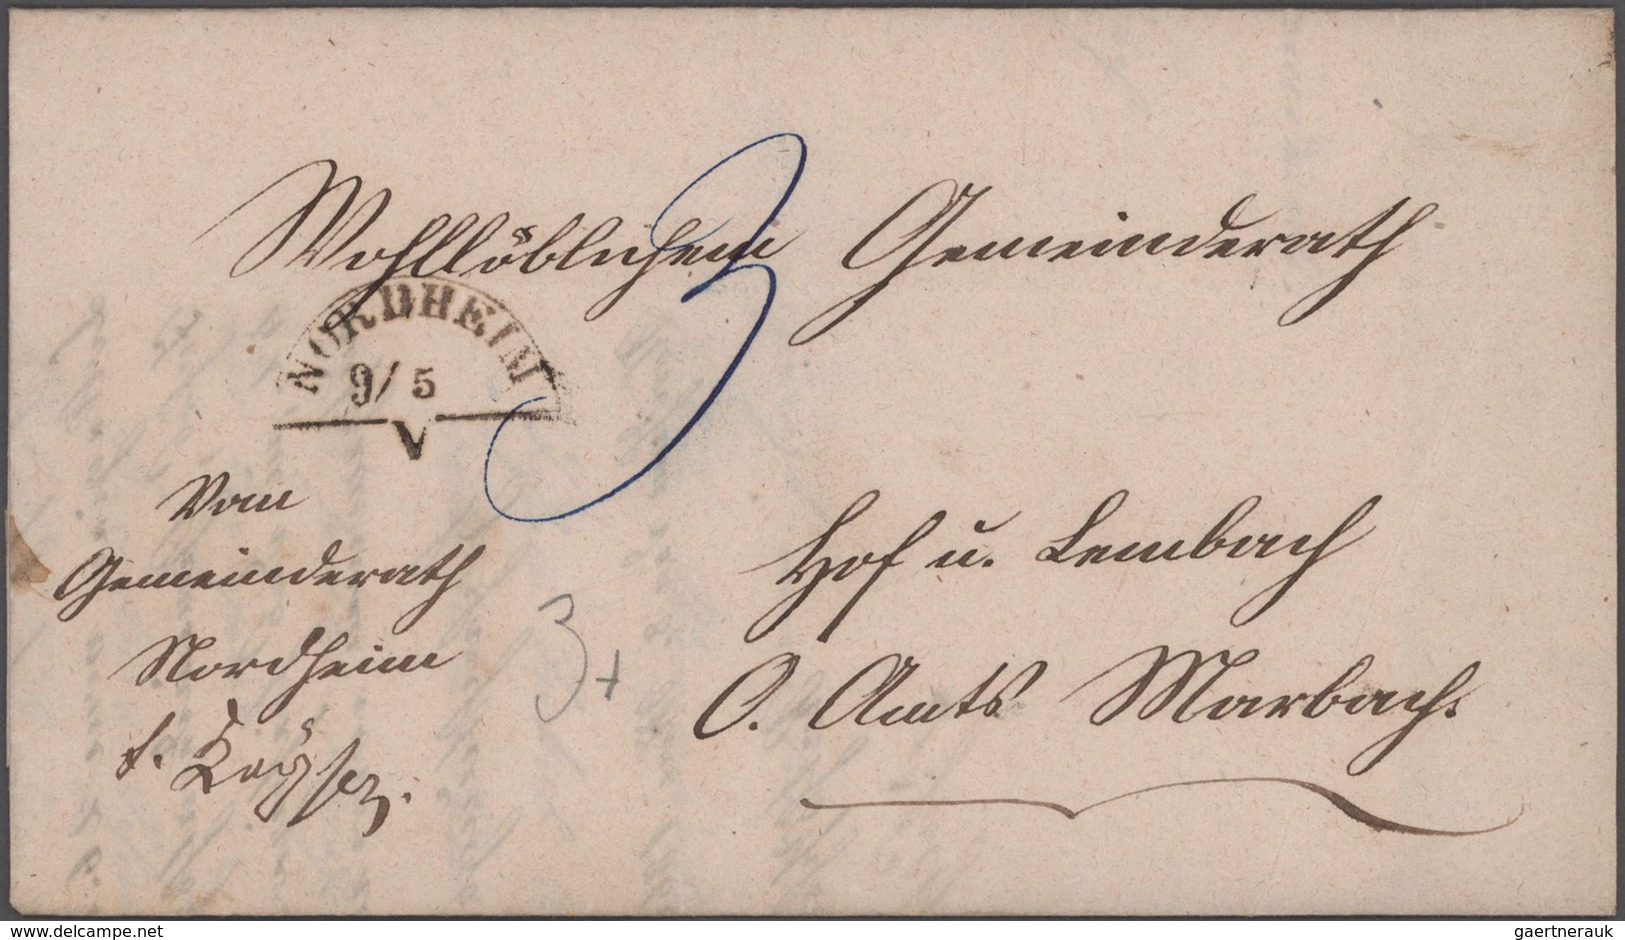 Wohllöblichem Gemeinderath
3
NORDHEIM
9/ 5
Vom
Gemeinderath
Nordheim
Hof u. Lembach
O. Amts Marbach.
3+
delcampe.net
gaertnerauk